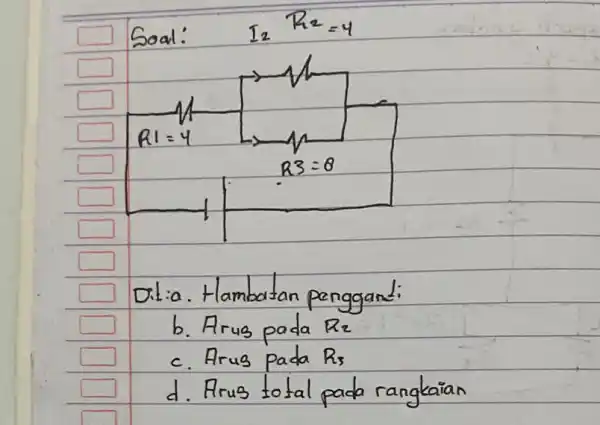 Soal:
I2 R2 = 4
R1 = 4
R3 = 8
Dit: a. Hambatan pengganti
b. Arus pada R2
c. Arus pada R3
d. Arus total pada rangkaian